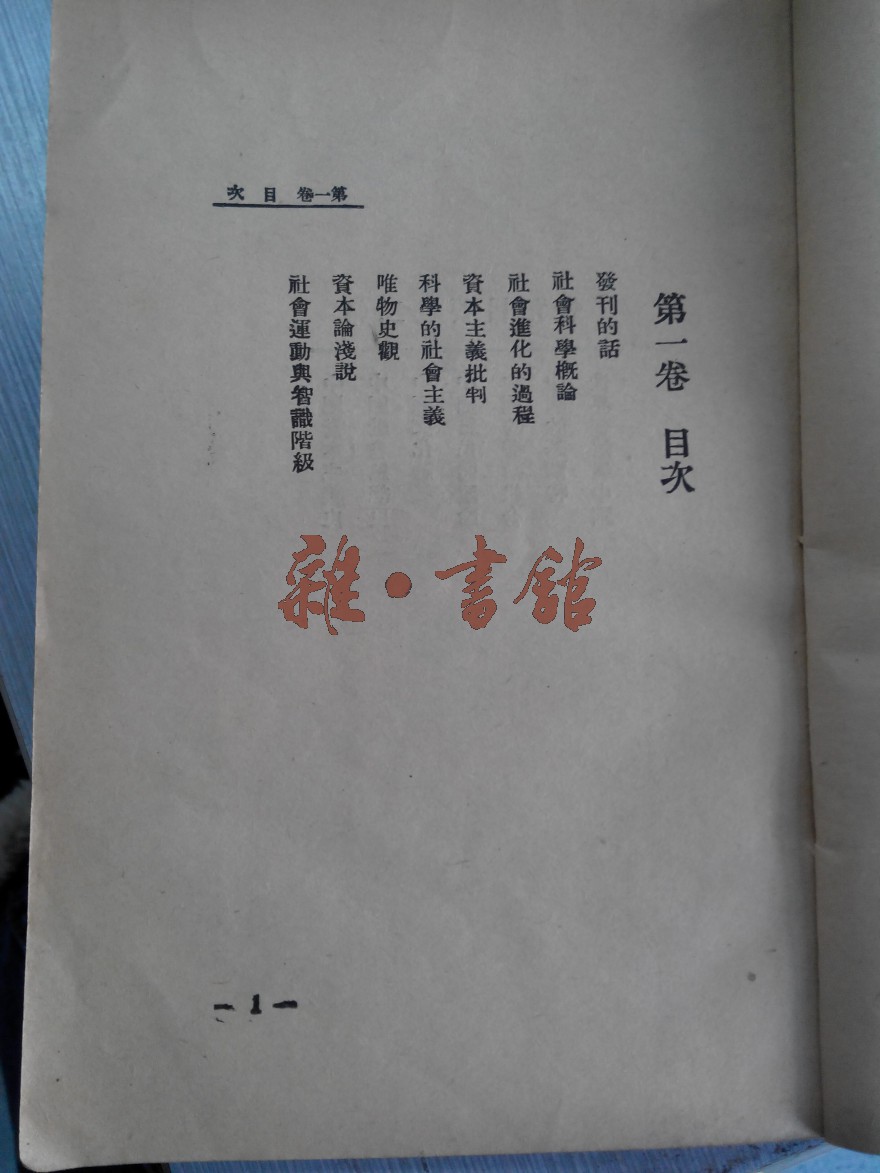 第一卷 目次
第一卷 目次
發刊的話
社會科學概論
社會進化的過程
資本主義批判
科學的社會主義
唯物史觀
資本論淺說
社會運動與智識階級
雜·書館
— 1 —